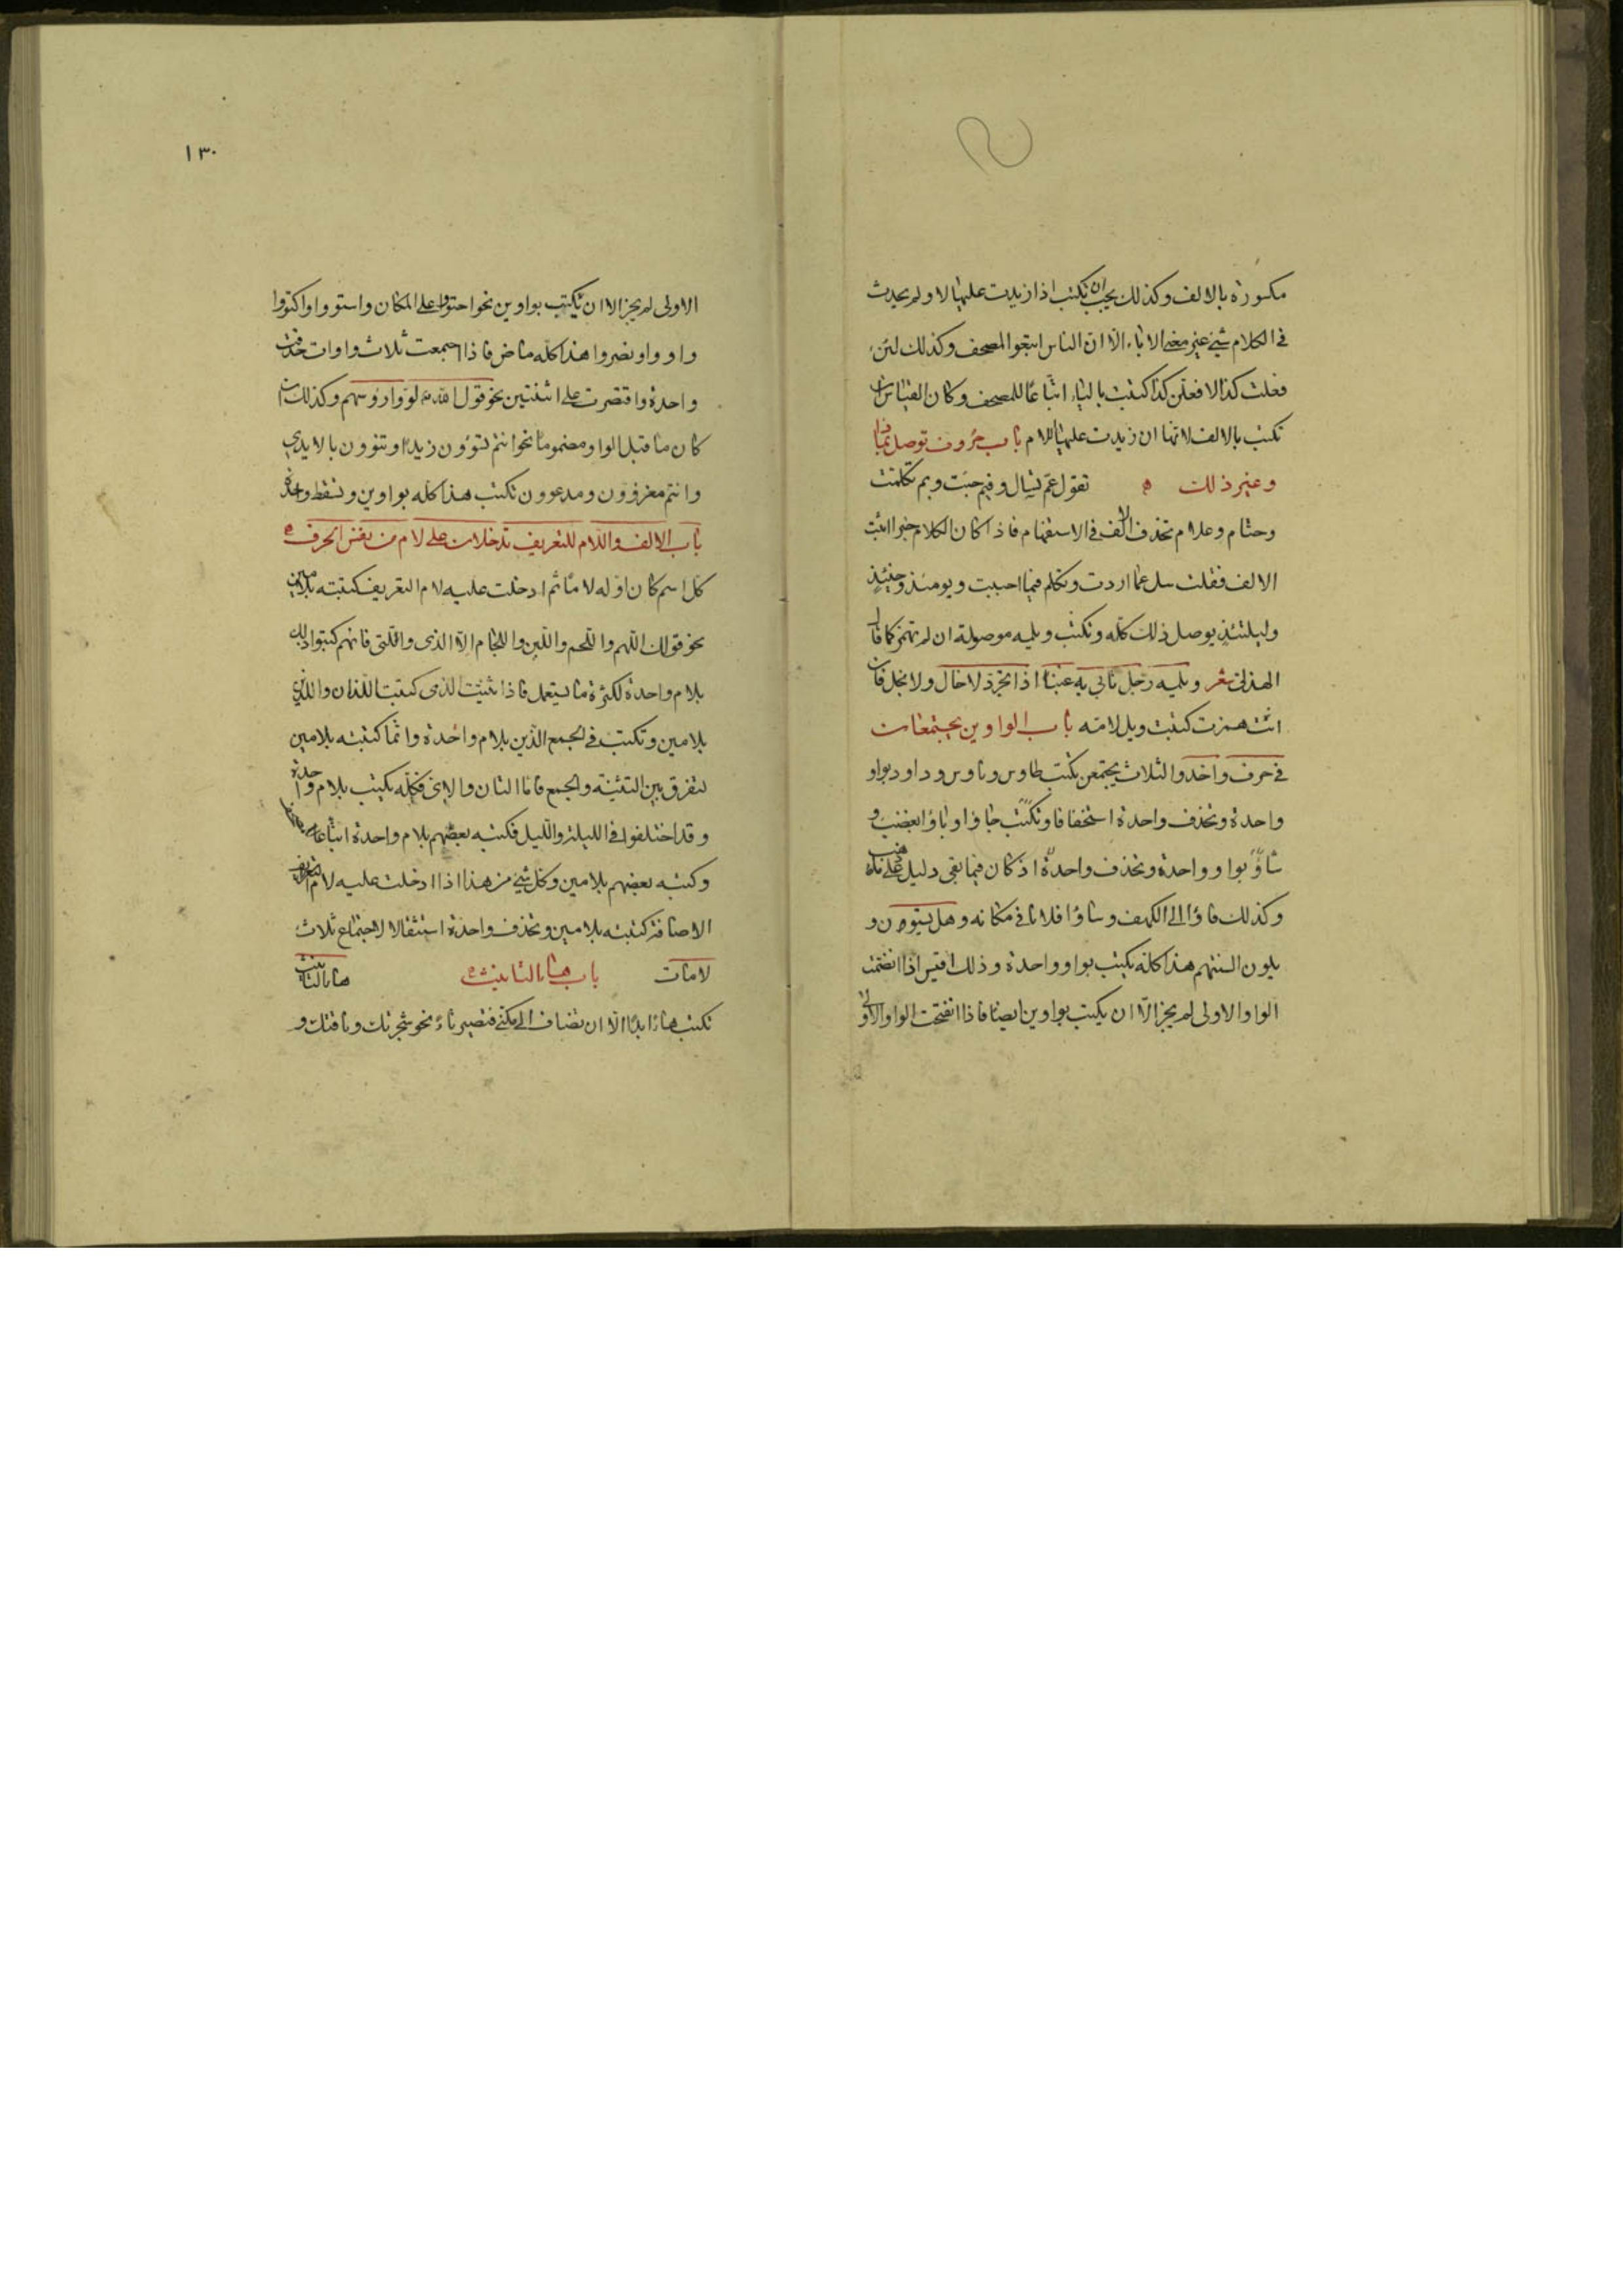 مكسورة بالالف وكذلك يجب ان تكتب اذا زيدت عليها لا ولم يحدث
فى الكلام شئ غير معنى الاباء الّا انّ الناس اتبعوا المصحف وكذلك لئن
فعلت كذا لافعلن كذا كتبت بالياء اتّباعًا للمصحف وكان القياس ان
تكتب بالالف لانها ان زيدت عليها اللام باب حروف توصل بما
وغير ذلك ه تقول عمّ تسال وفيم جئت وبم تكلمت
وحتام وعلام تحذف الالف فى الاستفهام فاذا كان الكلام خبرا اثبت
الالف فقلت سل عما اردت وتكلم فيما احببت ويومئذ وحينئذ
وليلتئذ يوصل ذلك كله وتكتب ويلمه موصولة ان لم تهمز كما قال
الهذلى شعر ويلمه رجل تابى به غبنا اذا تجرد لا خال ولا بخل فان
انت همزت كتبت ويل لامّه باب الواوين يجتمعان
فى حرف واحد والثلاث يجتمعن يكتب طاوس وناوس وداود بواو
واحدة وتحذف واحدة استخفافا وتكتب جاؤا وباؤا بغضب و
شاؤا بواو واحدة وتحذف واحدة اذ كان فيما بقى دليل على ما ذهب
وكذلك فاؤا الى الكهف وساؤا فلانا فى مكانه وهل يستون و
يلون السنتهم هذا كله يكتب بواو واحدة وذلك اقيس اذا انضمت
الواو الاولى لم يجز الّا ان يكتب بواوين ايضا فاذا انفتحت الواو الاولى
١٣٠
الاولى لم يجز الا ان يكتب بواوين نحو احتووا على المكان واستووا واكتووا
واووا ونضروا هذا كله ماض فاذا اجتمعت ثلاث واوات حذفت
واحدة واقتصرت على اثنتين نحو قول الله لوّوا رؤسهم وكذلك ان
كان ما قبل الواو مضموما نحو انتم تسوؤن زيدًا وتنوؤن بالايدى
وانتم مغزوون ومدعوون تكتب هذا كله بواوين وتسقط واحدة
باب الالف واللام للتعريف تدخلان على لام من نفس الحرف ه
كل اسم كان اوله لامًا ثم ادخلت عليه لام التعريف كتبته بلامين
نحو قولك اللهم واللحم واللبن واللجام الّا الذى والتى فانهم كتبوا ذلك
بلام واحدة لكثرة ما يستعمل فاذا ثنيت الذى كتبت اللذان واللذين
بلامين وتكتب فى الجمع الذين بلام واحدة وانما كتبته بلامين
لتفرق بين التثنية والجمع فاما التان والاتى فكله يكتب بلام واحدة
وقد اختلفوا فى الليلة والليل فكتبه بعضهم بلام واحدة اتباعا
وكتبه بعضهم بلامين وكل شئ من هذا اذا ادخلت عليه لام
الاضافة كتبته بلامين وتحذف واحدة استثقالا لاجتماع ثلاث
لامات باب هاء التانيث ه هاء التانيث
تكتب هاء ابدًا الّا ان تضاف الى مكنى فتصير تاءً نحو شجرتك وناقتك و